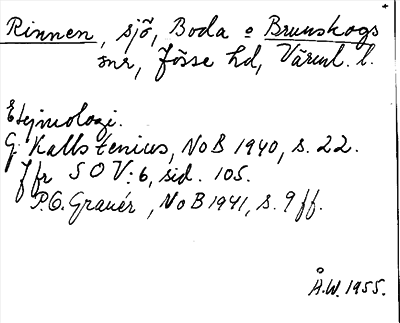 Rinnen, sjö, Boda o Brunskogs
snr, Jösse hd, Värml. l.
Etymologi.
G. Kallstenius, NoB 1940, s. 22.
Jfr SOV: 6, sid. 105.
P.O. Granér, NoB 1941, s. 9 ff.
Å.W. 1955.